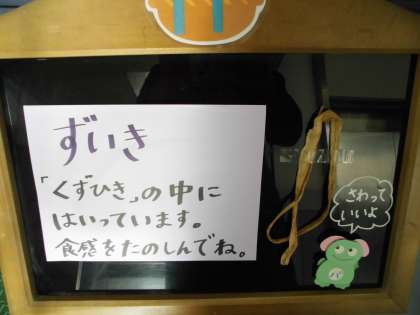 ずいき
「くずひき」の中に
はいっています。
食感をたのしんでね。
さわって
いいよ